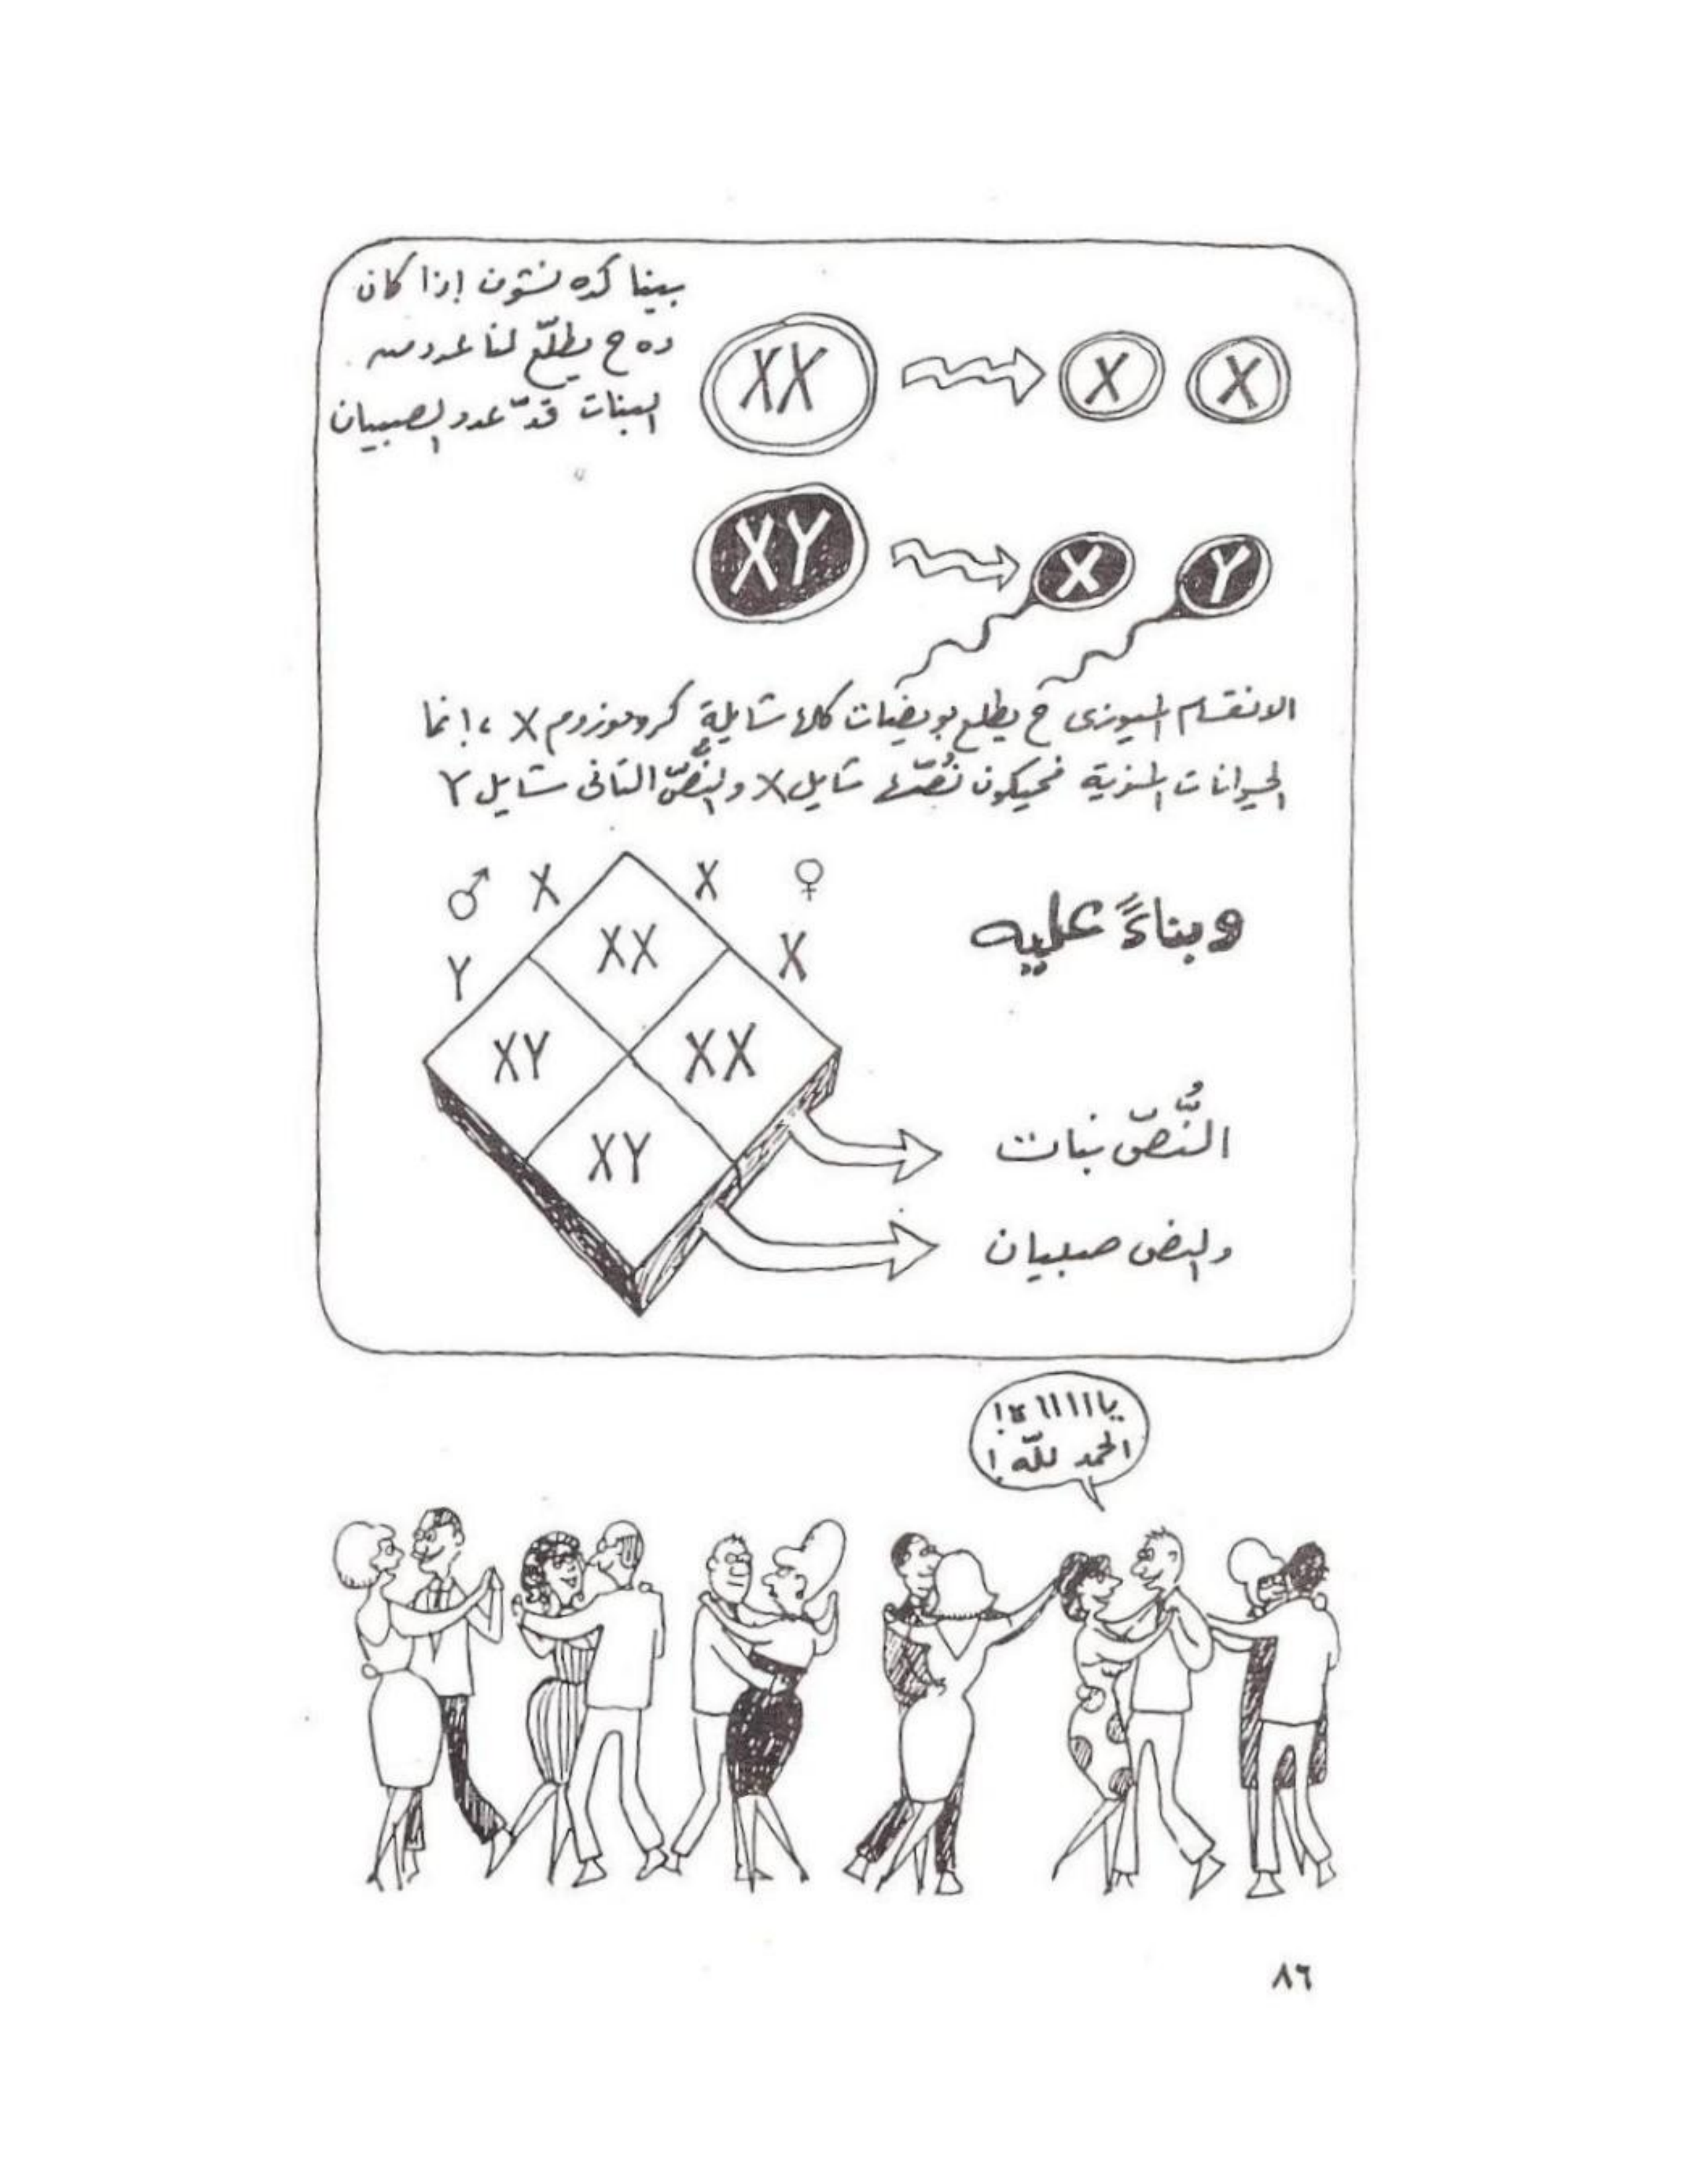 بينا كده نشوف إذا كان
ده ح يطلّع لنا عدد من
البنات قدّ عدد الصبيان
XX X X
XY X Y
الانقسام الميوزى ح يطلع بويضات كلها شايلة كروموزوم X ، إنما
الحيوانات المنوية فحيكون نُصّها شايل X والنُصّ التانى شايل Y
♂ X X ♀
Y XX X
وبناءً عليه
XY XX
XY
النُّصّ بنات
والنص صبيان
يااااااه!
الحمد للّه!
٨٦